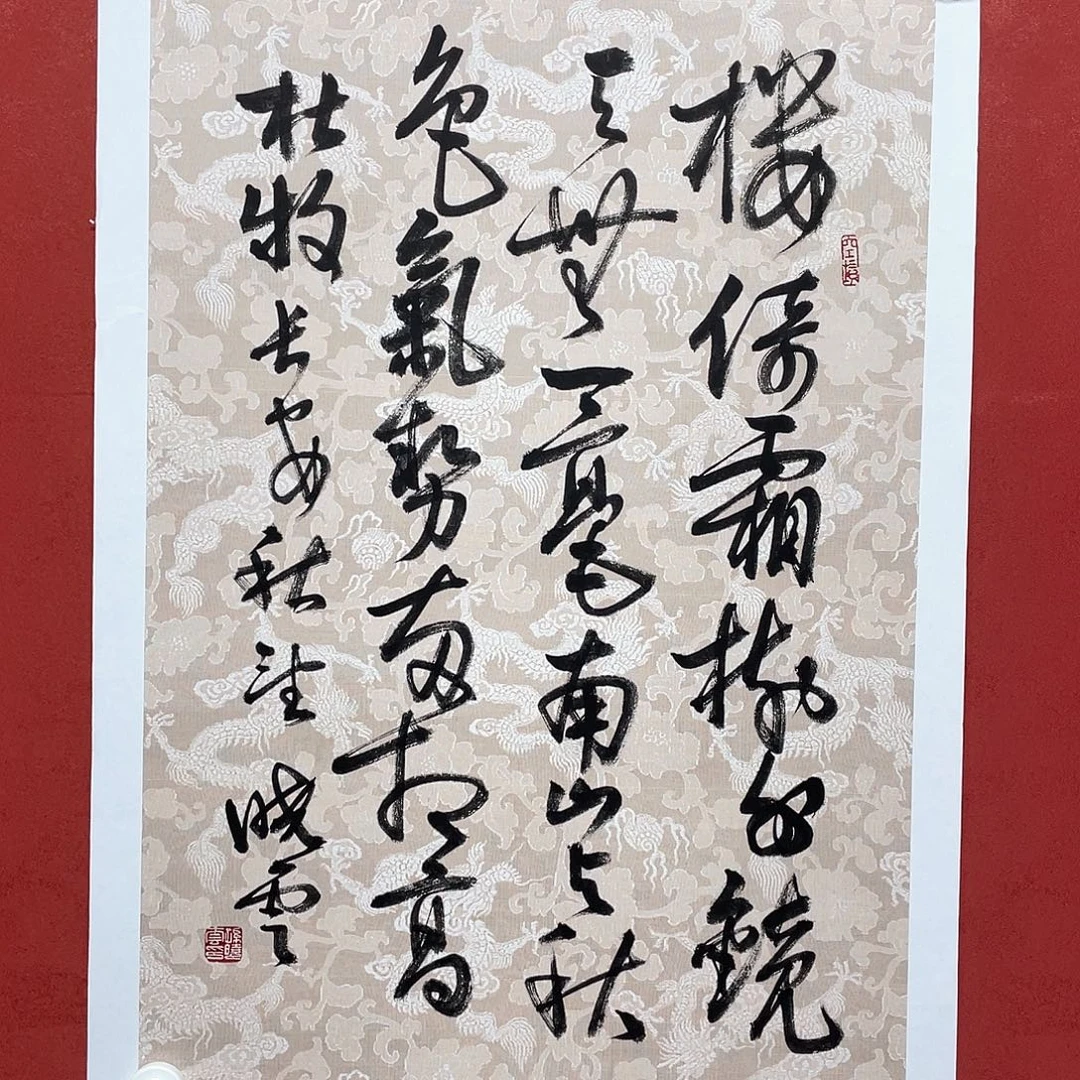 樓倚霜樹外鏡
天無一毫南山与秋
色氣勢兩相高
杜牧長安秋望 曉雲